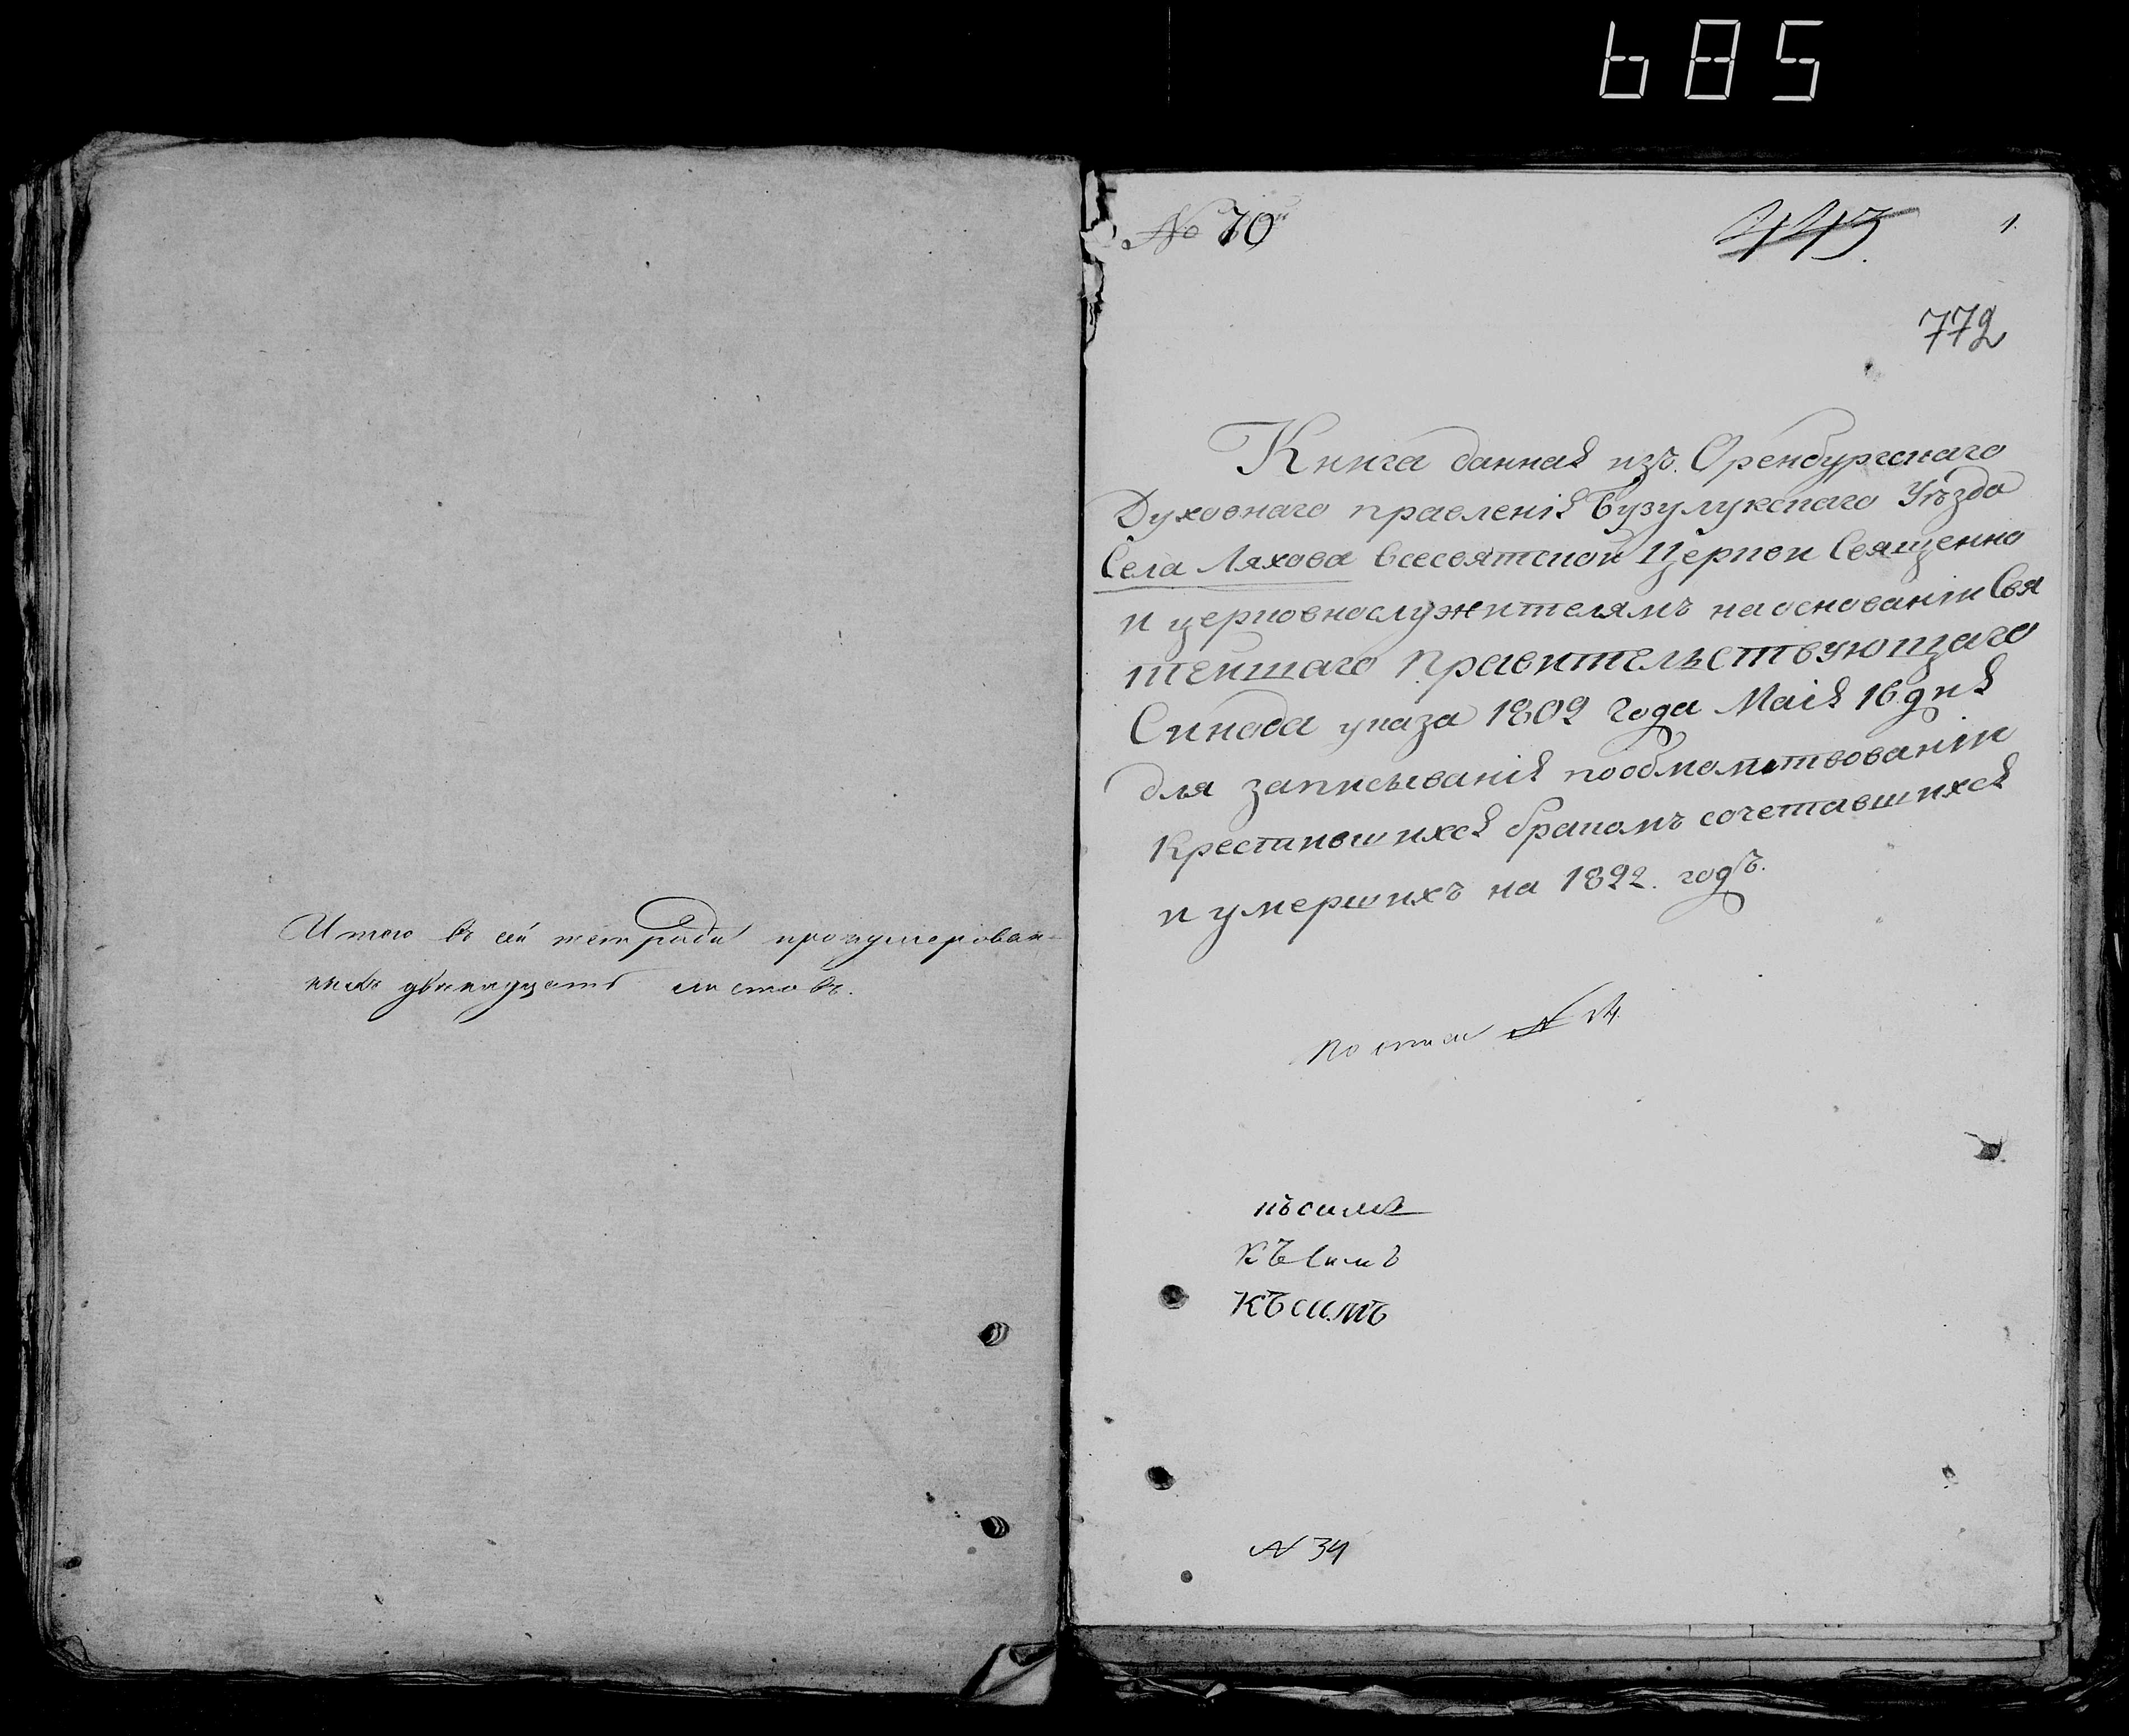 685
Итого въ сей тетради пронумерован-
ныхъ двенадцать листовъ.
№ 70й
445.
1.
772
Книга данная изъ Оренбургскаго
Духовнаго правленія Бузулукскаго Уѣзда
Села Ляхова Всесвятской Церкви Священно
и церковнослужителямъ на основаніи Свя
тейшаго Правительствующаго
Синода указа 1802 Года Маія 16 дня
для записыванія
крестившихся бракомъ сочетавшихся
и умершихъ на 1822. годъ.
По описи № 14
къ симъ
къ симъ
къ симъ
№ 34